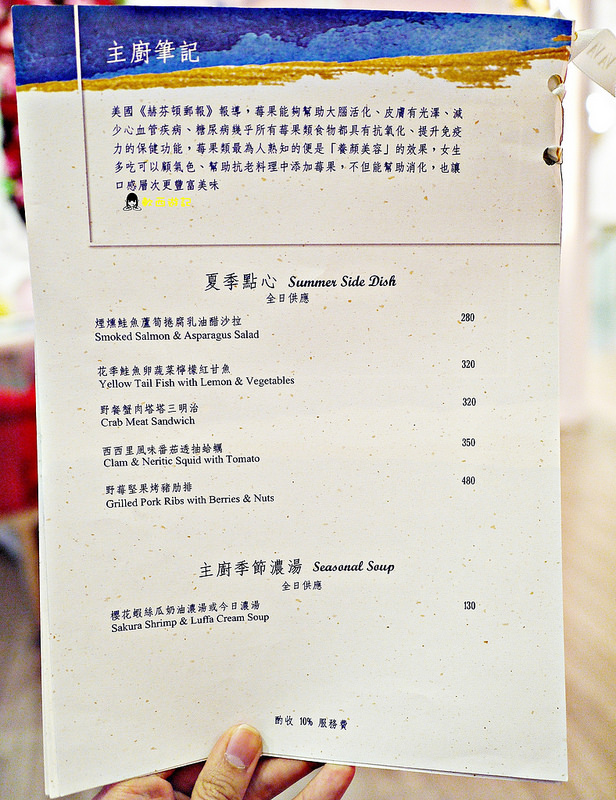 主廚筆記
美國《赫芬頓郵報》報導，莓果能夠幫助大腦活化、皮膚有光澤、減
少心血管疾病、糖尿病幾乎所有莓果類食物都具有抗氧化、提升免疫
力的保健功能，莓果類最為人熟知的便是「養顏美容」的效果，女生
多吃可以顧氣色、幫助抗老料理中添加莓果，不但能幫助消化，也讓
口感層次更豐富美味
夏季點心 Summer Side Dish
全日供應
煙燻鮭魚蘆筍捲腐乳油醋沙拉 280
Smoked Salmon & Asparagus Salad
花季鮭魚卵蔬菜檸檬紅甘魚 320
Yellow Tail Fish with Lemon & Vegetables
野餐蟹肉塔塔三明治 320
Crab Meat Sandwich
西西里風味番茄透抽蛤蠣 350
Clam & Neritic Squid with Tomato
野莓堅果烤豬肋排 480
Grilled Pork Ribs with Berries & Nuts
主廚季節濃湯 Seasonal Soup
全日供應
櫻花蝦絲瓜奶油濃湯或今日濃湯 130
Sakura Shrimp & Luffa Cream Soup
酌收 10% 服務費